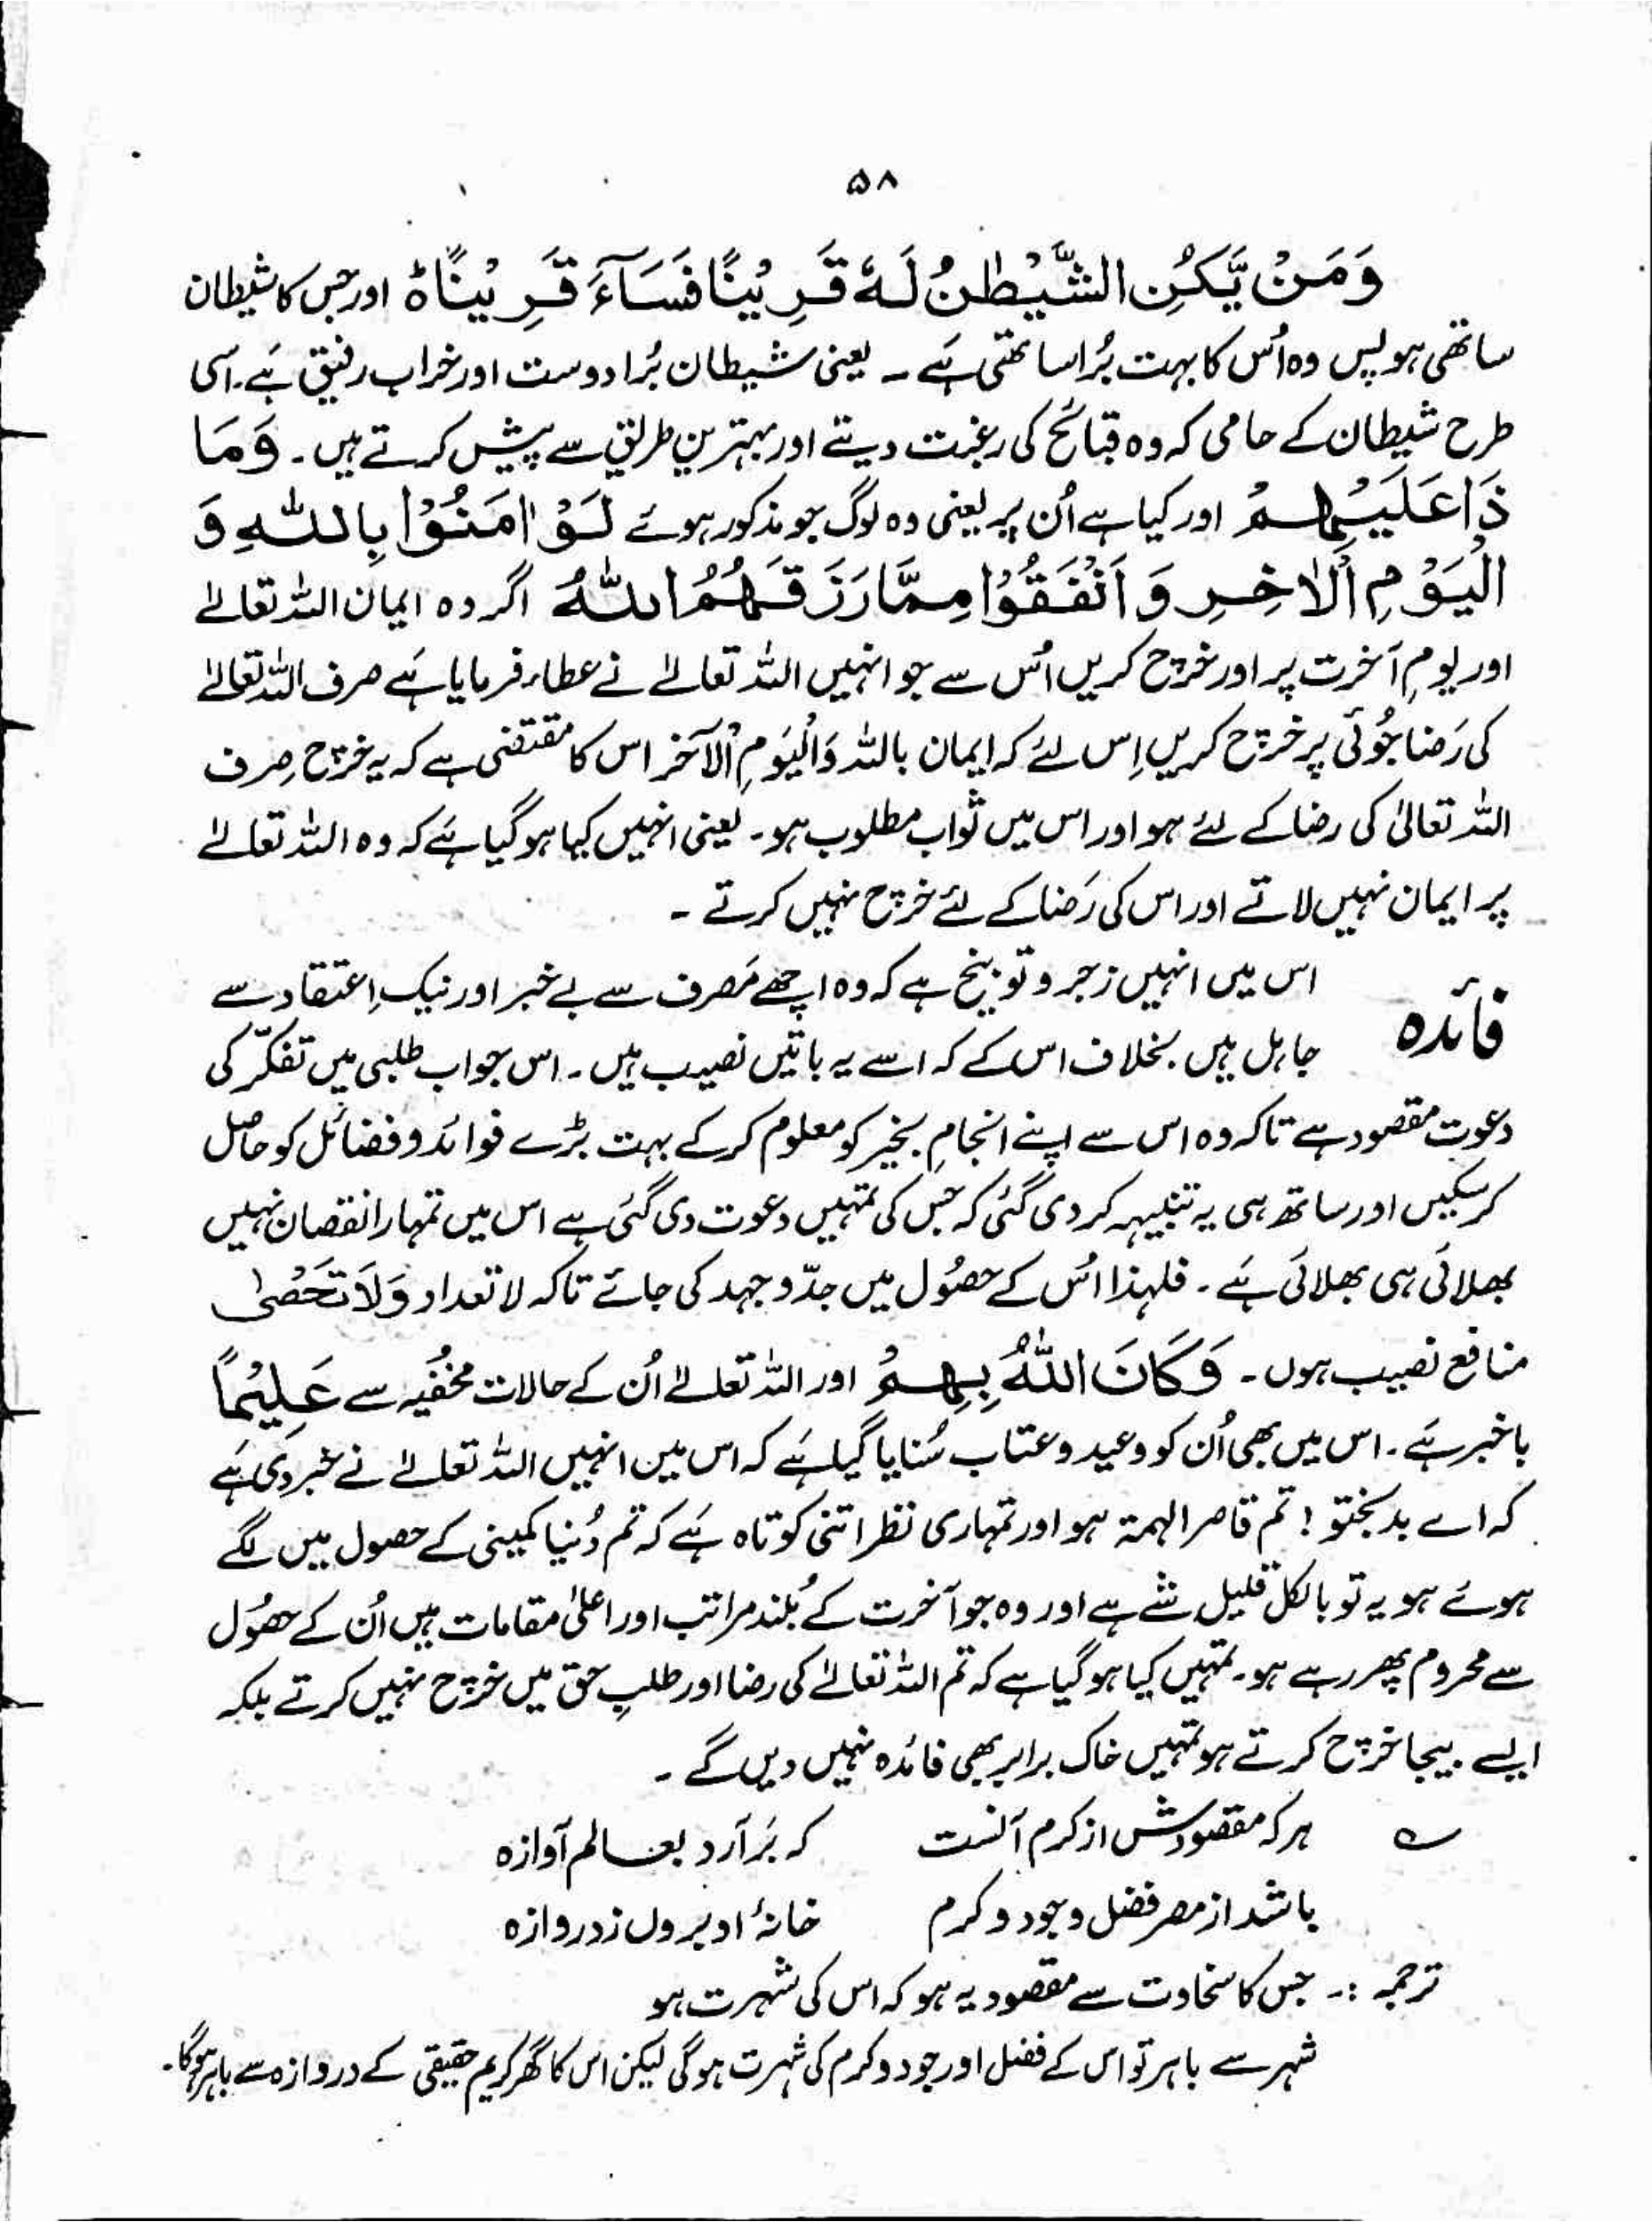 ۵۸
وَمَنْ يَّكُنِ الشَّيْطٰنُ لَهٗ قَرِيْنًا فَسَآءَ قَرِيْنًا۝ اور جس کا شیطان
ساتھی ہو پس وہ اُس کا بہت بُرا ساتھی ہَے ۔ یعنی شیطان بُرا دوست اور خراب رفیق ہَے۔ اسی
طرح شیطان کے حامی کہ وہ قبائح کی رغبت دیتے اور بہترین طریق سے پیش کرتے ہیں ۔ وَمَا
ذَا عَلَيْهِمْ اور کیا ہے اُن پر یعنی وہ لوگ جو مذکور ہوئے لَوْ اٰمَنُوْا بِاللّٰهِ وَ
الْيَوْمِ الْاٰخِرِ وَ اَنْفَقُوْا مِمَّا رَزَقَهُمُ اللّٰهُ اگر وہ ایمان اللہ تعالےٰ
اور یومِ آخرت پر اور خرچ کریں اُس سے جو انہیں اللہ تعالےٰ نے عطاء فرمایا ہَے صرف اللہ تعالےٰ
کی رَضا جُوئی پر خرچ کریں اِس لئے کہ ایمان باللہ وَالْیَوْمِ الْآخر اس کا مقتضی ہے کہ یہ خرچ صِرف
اللہ تعالیٰ کی رضا کے لئے ہو اور اس میں ثواب مطلوب ہو۔ یعنی انہیں کیا ہو گیا ہَے کہ وہ اللہ تعالےٰ
پر ایمان نہیں لاتے اور اس کی رَضا کے لئے خرچ نہیں کرتے ۔
اس میں انہیں زجر و توبیخ ہے کہ وہ اچھے مَصرف سے بے خبر اور نیک اِعتقاد سے
فائدہ
جاہل ہیں بخلاف اس کے کہ اسے یہ باتیں نصیب ہیں ۔ اس جواب طلبی میں تفکّر کی
دعوت مقصود ہے تاکہ وہ اس سے اپنے انجام بخیر کو معلوم کرکے بہت بڑے فوائد و فضائل کو حاصل
کرسکیں اور ساتھ ہی یہ تنبیہہ کردی گئی کہ جس کی تمہیں دعوت دی گئی ہے اس میں تمہارا نقصان نہیں
بھلائی ہی بھلائی ہَے ۔ فلہٰذا اُس کے حصُول میں جدّوجہد کی جائے تاکہ لاتعداد وَلَا تُحْصٰی
منافع نصیب ہوں ۔ وَكَانَ اللّٰهُ بِهِمْ اور اللہ تعالےٰ اُن کے حالات مخفیہ سے عَلِيْمًا
باخبر ہَے ۔ اس میں بھی اُن کو وعید و عتاب سُنایا گیا ہَے کہ اس میں انہیں اللہ تعالےٰ نے خبر دی ہَے
کہ اے بدبختو ! تم قاصر الہمۃ ہو اور تمہاری نظر اتنی کوتاہ ہَے کہ تم دُنیا کمینی کے حصول میں لگے
ہوئے ہو یہ تو بالکل قلیل شَے ہے اور وہ جو آخرت کے بُلند مراتب اور اعلیٰ مقامات ہیں اُن کے حصُول
سے محروم پھر رہے ہو۔ تمہیں کیا ہو گیا ہے کہ تم اللہ تعالےٰ کی رضا اور طلبِ حق میں خرچ نہیں کرتے بلکہ
ایسے بیجا خرچ کرتے ہو تمہیں خاک برابر بھی فائدہ نہیں دیں گے ۔
؎ ہر کہ مقصودش از کرم آنست کہ بَرآرد بعالم آوازہ
باشد از مصر فضل و جود و کرم خانۂ او بروں ز دروازہ
ترجمہ :۔ جس کا سخاوت سے مقصود یہ ہو کہ اس کی شہرت ہو
شہر سے باہر تو اس کے فضل اور جود و کرم کی شہرت ہوگی لیکن اس کا گھر کریم حقیقی کے دروازہ سے باہر ہوگا۔